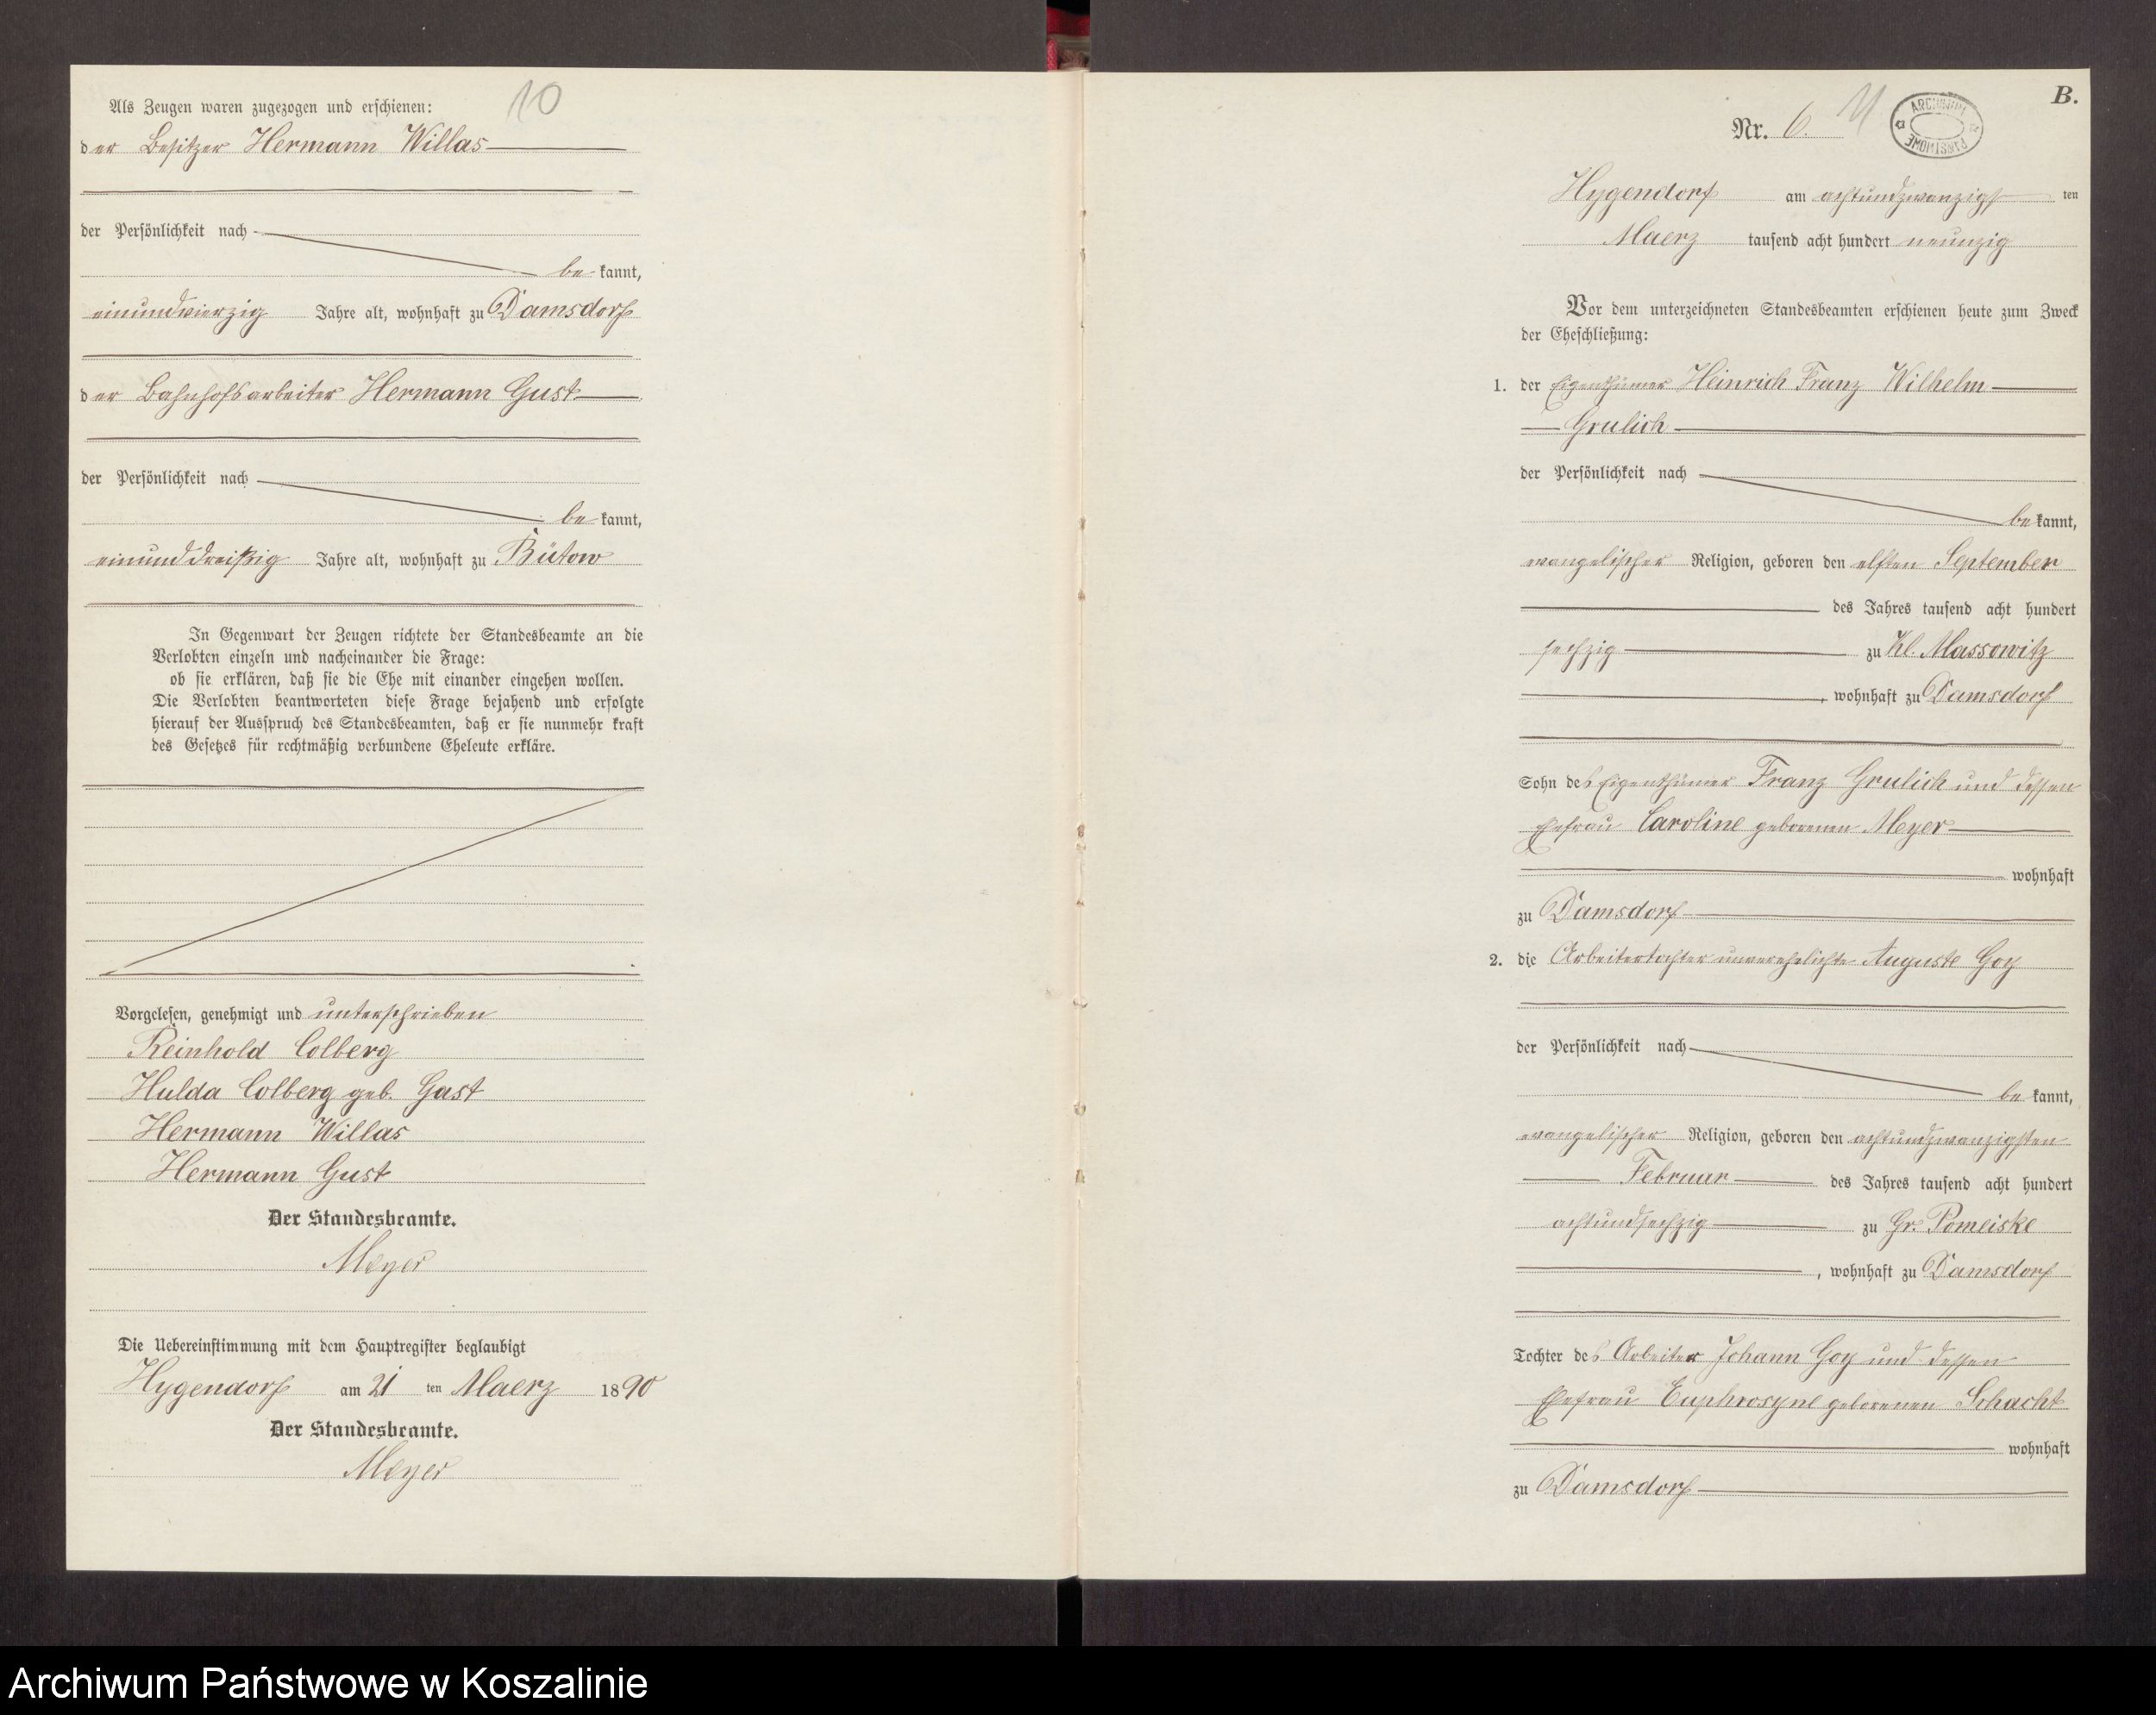 10
Als Zeugen waren zugezogen und erschienen:
der Besitzer Hermann Willas
der Persönlichkeit nach
be kannt,
einundvierzig Jahre alt, wohnhaft zu Damsdorf
der Bahnhofsarbeiter Hermann Gust
der Persönlichkeit nach
be kannt,
einunddreißig Jahre alt, wohnhaft zu Bütow
In Gegenwart der Zeugen richtete der Standesbeamte an die
Verlobten einzeln und nacheinander die Frage:
ob sie erklären, daß sie die Ehe mit einander eingehen wollen.
Die Verlobten beantworteten diese Frage bejahend und erfolgte
hierauf der Ausspruch des Standesbeamten, daß er sie nunmehr kraft
des Gesetzes für rechtmäßig verbundene Eheleute erkläre.
Vorgelesen, genehmigt und unterschrieben
Reinhold Colberg
Hulda Colberg geb. Gast
Hermann Willas
Hermann Gust
Der Standesbeamte.
Meyer
Die Uebereinstimmung mit dem Hauptregister beglaubigt
Hygendorf am 21 ten Maerz 1890
Der Standesbeamte.
Meyer
B.
Nr. 6. 11
ARCHIWUM PAŃSTWOWE
Hygendorf am achtundzwanzigs ten
Maerz tausend acht hundert neunzig
Vor dem unterzeichneten Standesbeamten erschienen heute zum Zweck
der Eheschließung:
1. der Eigenthümer Heinrich Franz Wilhelm
Grulich
der Persönlichkeit nach
be kannt,
evangelischer Religion, geboren den elften September
des Jahres tausend acht hundert
sechzig zu Kl. Massowitz
, wohnhaft zu Damsdorf
Sohn des Eigenthümer Franz Grulich und dessen
Ehefrau Caroline geborenen Meyer
wohnhaft
zu Damsdorf
2. die Arbeitertochter unverehelichte Auguste Goy
der Persönlichkeit nach
be kannt,
evangelischer Religion, geboren den achtundzwanzigsten
Februar des Jahres tausend acht hundert
achtundsechzig zu Gr. Pomeiske
, wohnhaft zu Damsdorf
Tochter des Arbeiter Johann Goy und dessen
Ehefrau Euphrosyne geborenen Schacht
wohnhaft
zu Damsdorf
Archiwum Państwowe w Koszalinie